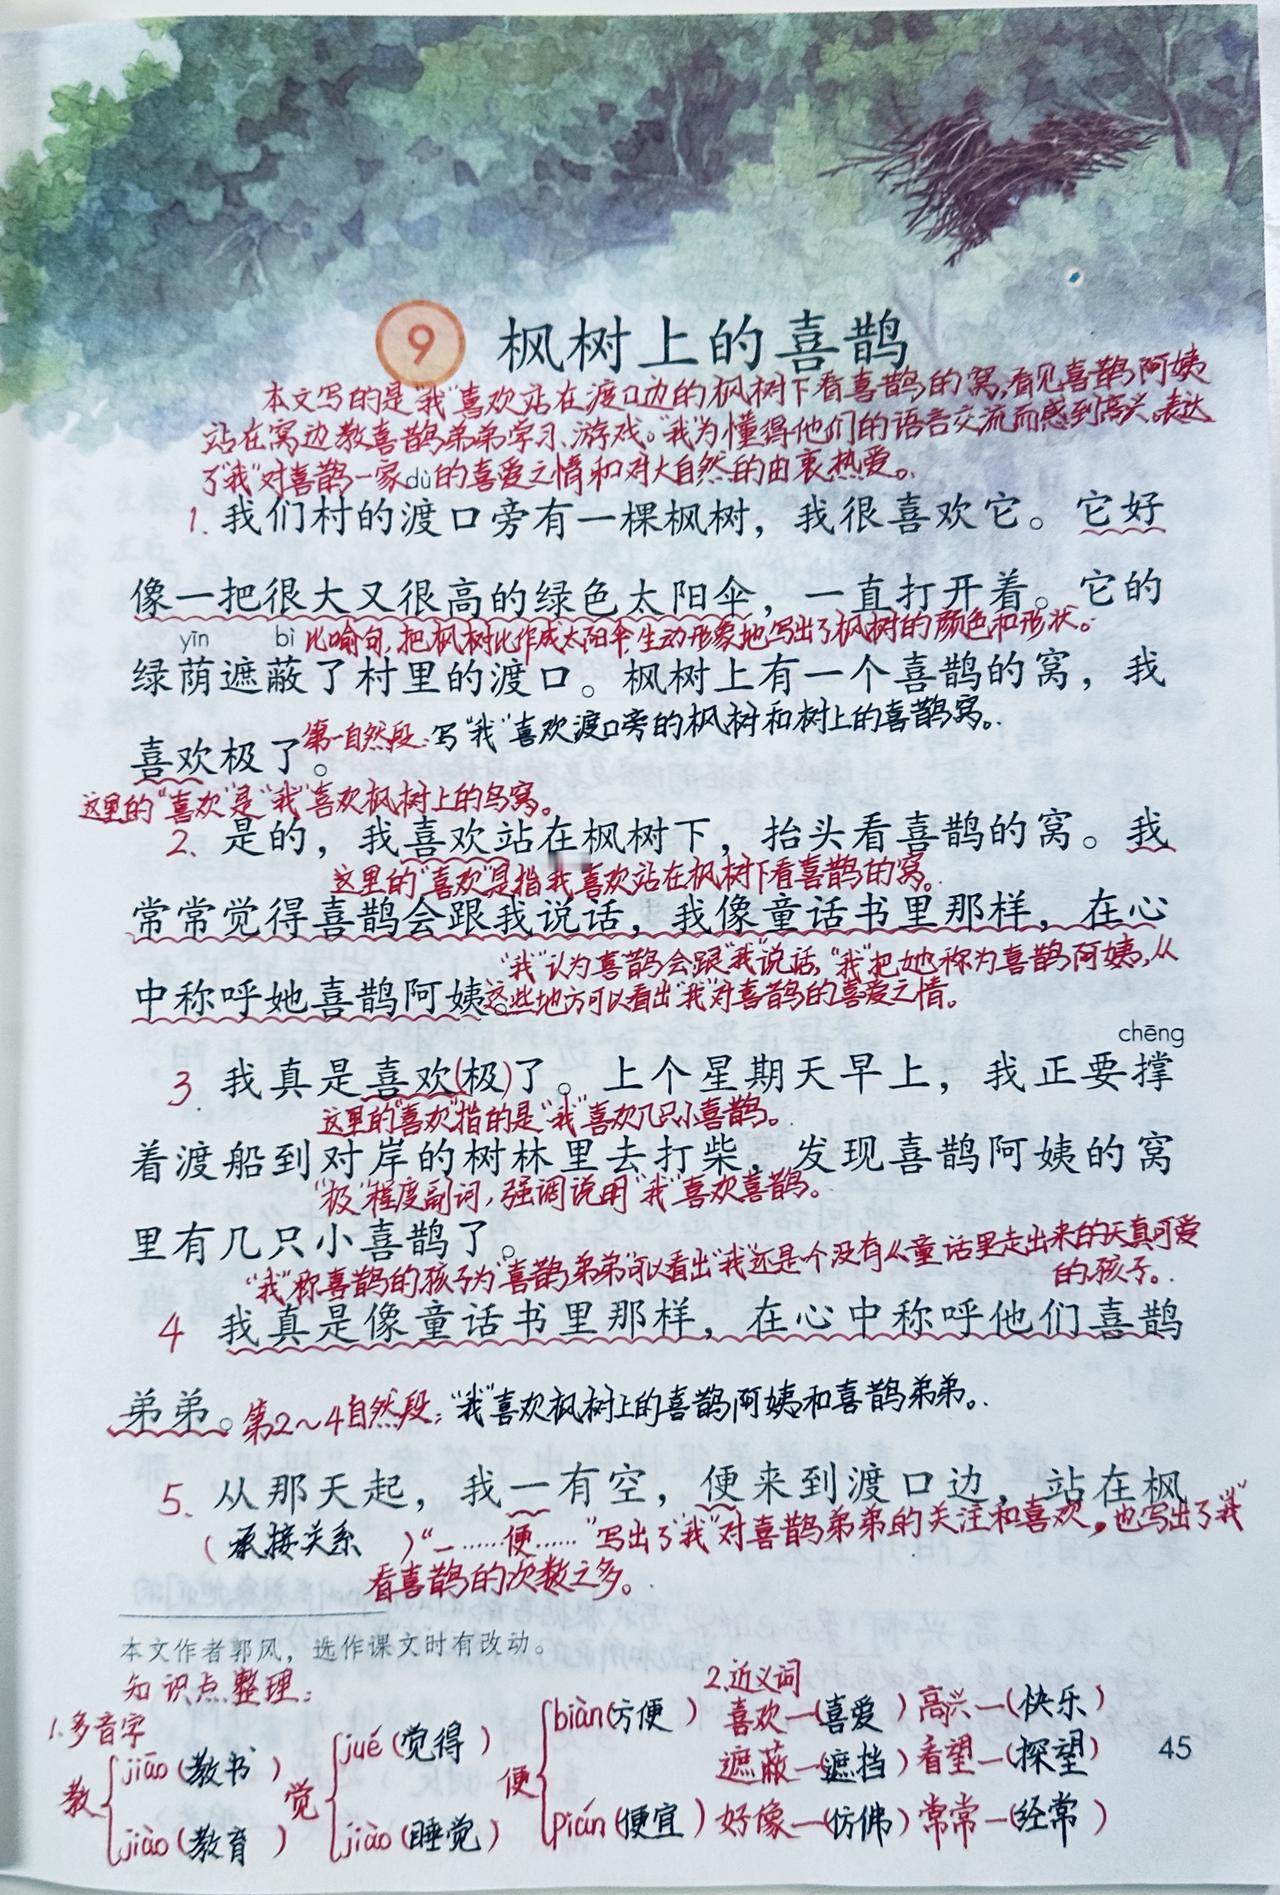 9 枫树上的喜鹊
本文写的是“我”喜欢站在渡口边的枫树下看喜鹊的窝,看见喜鹊阿姨
站在窝边教喜鹊弟弟学习、游戏。“我”为懂得他们的语言交流而感到高兴。表达
了“我”对喜鹊一家的喜爱之情和对大自然的由衷热爱。
dù
1. 我们村的渡口旁有一棵枫树，我很喜欢它。它好
像一把很大又很高的绿色太阳伞，一直打开着。它的
比喻句,把枫树比作成太阳伞,生动形象地写出了枫树的颜色和形状。
yīn bì
绿荫遮蔽了村里的渡口。枫树上有一个喜鹊的窝，我
第一自然段:写“我”喜欢渡口旁的枫树和树上的喜鹊窝。
喜欢极了。
这里的“喜欢”是“我”喜欢枫树上的鸟窝。
2. 是的，我喜欢站在枫树下，抬头看喜鹊的窝。我
这里的“喜欢”是指我喜欢站在枫树下看喜鹊的窝。
常常觉得喜鹊会跟我说话，我像童话书里那样，在心
“我”认为喜鹊会跟“我”说话,“我”把她称为喜鹊阿姨,从
中称呼她喜鹊阿姨。
这些地方可以看出“我”对喜鹊的喜爱之情。
chēng
3. 我真是喜欢(极)了。上个星期天早上，我正要撑
这里的“喜欢”指的是“我”喜欢几只小喜鹊。
着渡船到对岸的树林里去打柴，发现喜鹊阿姨的窝
“极”程度副词,强调说明“我”喜欢喜鹊。
里有几只小喜鹊了。
“我”称喜鹊的孩子为“喜鹊弟弟”可以看出“我”还是个没有从童话里走出来的天真可爱
的孩子。
4 我真是像童话书里那样，在心中称呼他们喜鹊
弟弟。
第2~4自然段:“我”喜欢枫树上的喜鹊阿姨和喜鹊弟弟。
5. 从那天起，我一有空，便来到渡口边，站在枫
(承接关系)“一……便……”写出了“我”对喜鹊弟弟的关注和喜欢,也写出了“我”
看喜鹊的次数之多。
本文作者郭风，选作课文时有改动。
知识点整理:
1.多音字
教 jiāo(教书) jiào(教育)
觉 jué(觉得) jiào(睡觉)
便 biàn(方便) Pián(便宜)
2.近义词
喜欢—(喜爱) 高兴—(快乐)
遮蔽—(遮挡) 看望—(探望)
好像—(仿佛) 常常—(经常)
45